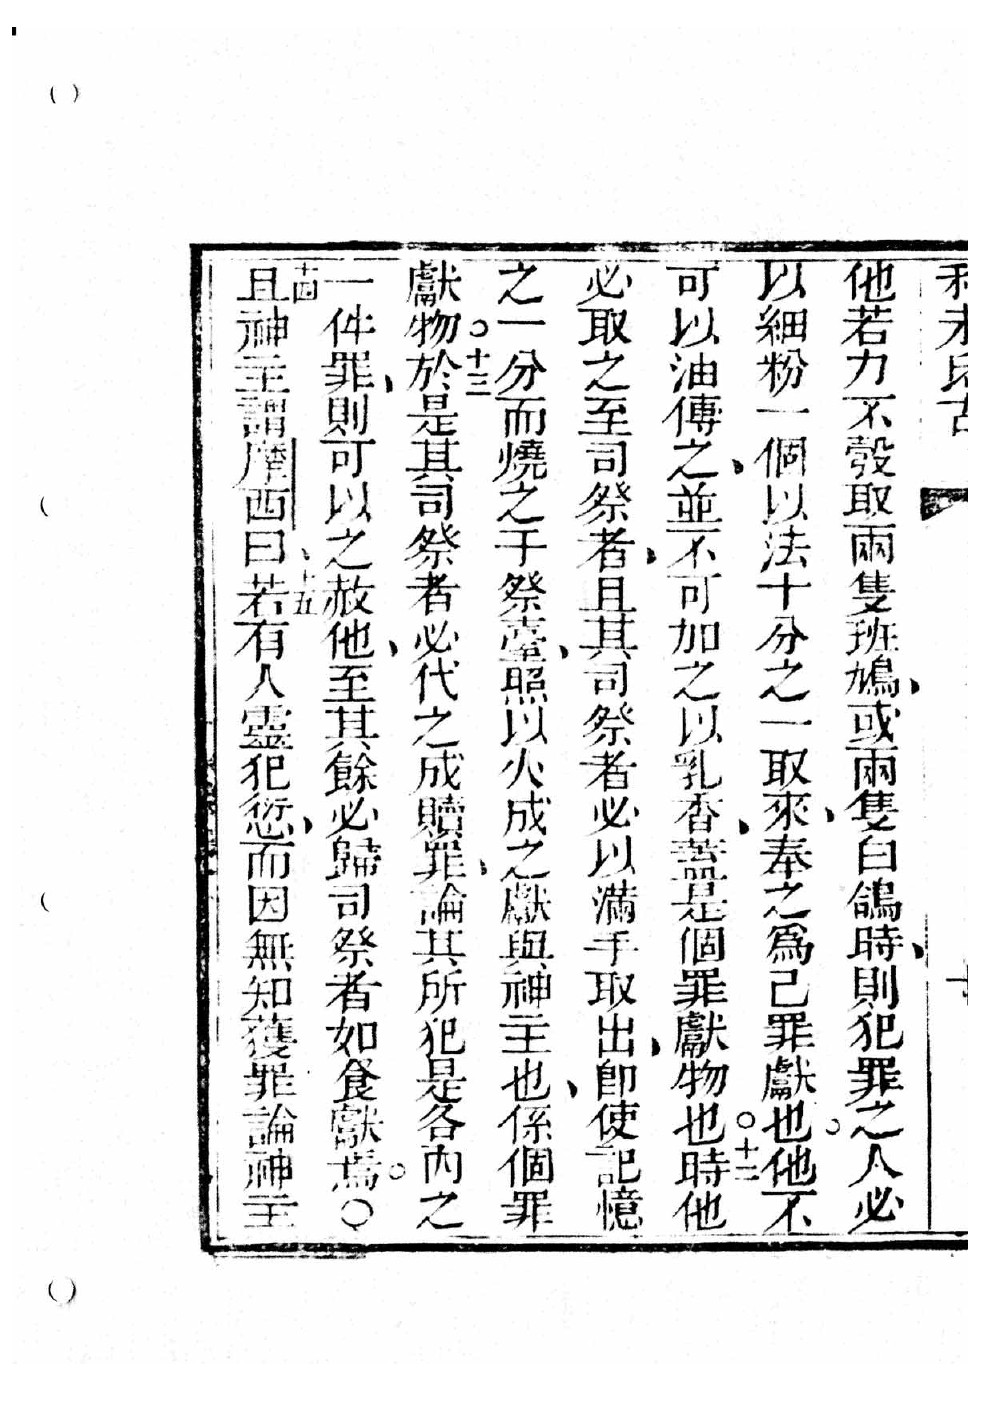 利未氏古
他若力不彀取兩隻班鳩、或兩隻白鴿時、則犯罪之人必
以細粉一個以法十分之一取來、奉之爲己罪獻也。他不
可以油傳之、並不可加之以乳香、蓋是個罪獻物也○十二時他
必取之至司祭者、且其司祭者必以滿手取出、即使記憶
之一分而燒之于祭臺、照以火成之獻與神主也、係個罪
獻物○十三於是其司祭者必代之成贖罪、論其所犯是各內之
一件罪、則可以之赦他、至其餘必歸司祭者如食獻焉。○
十四且神主謂摩西曰、十五若有人靈犯愆、而因無知獲罪論神主